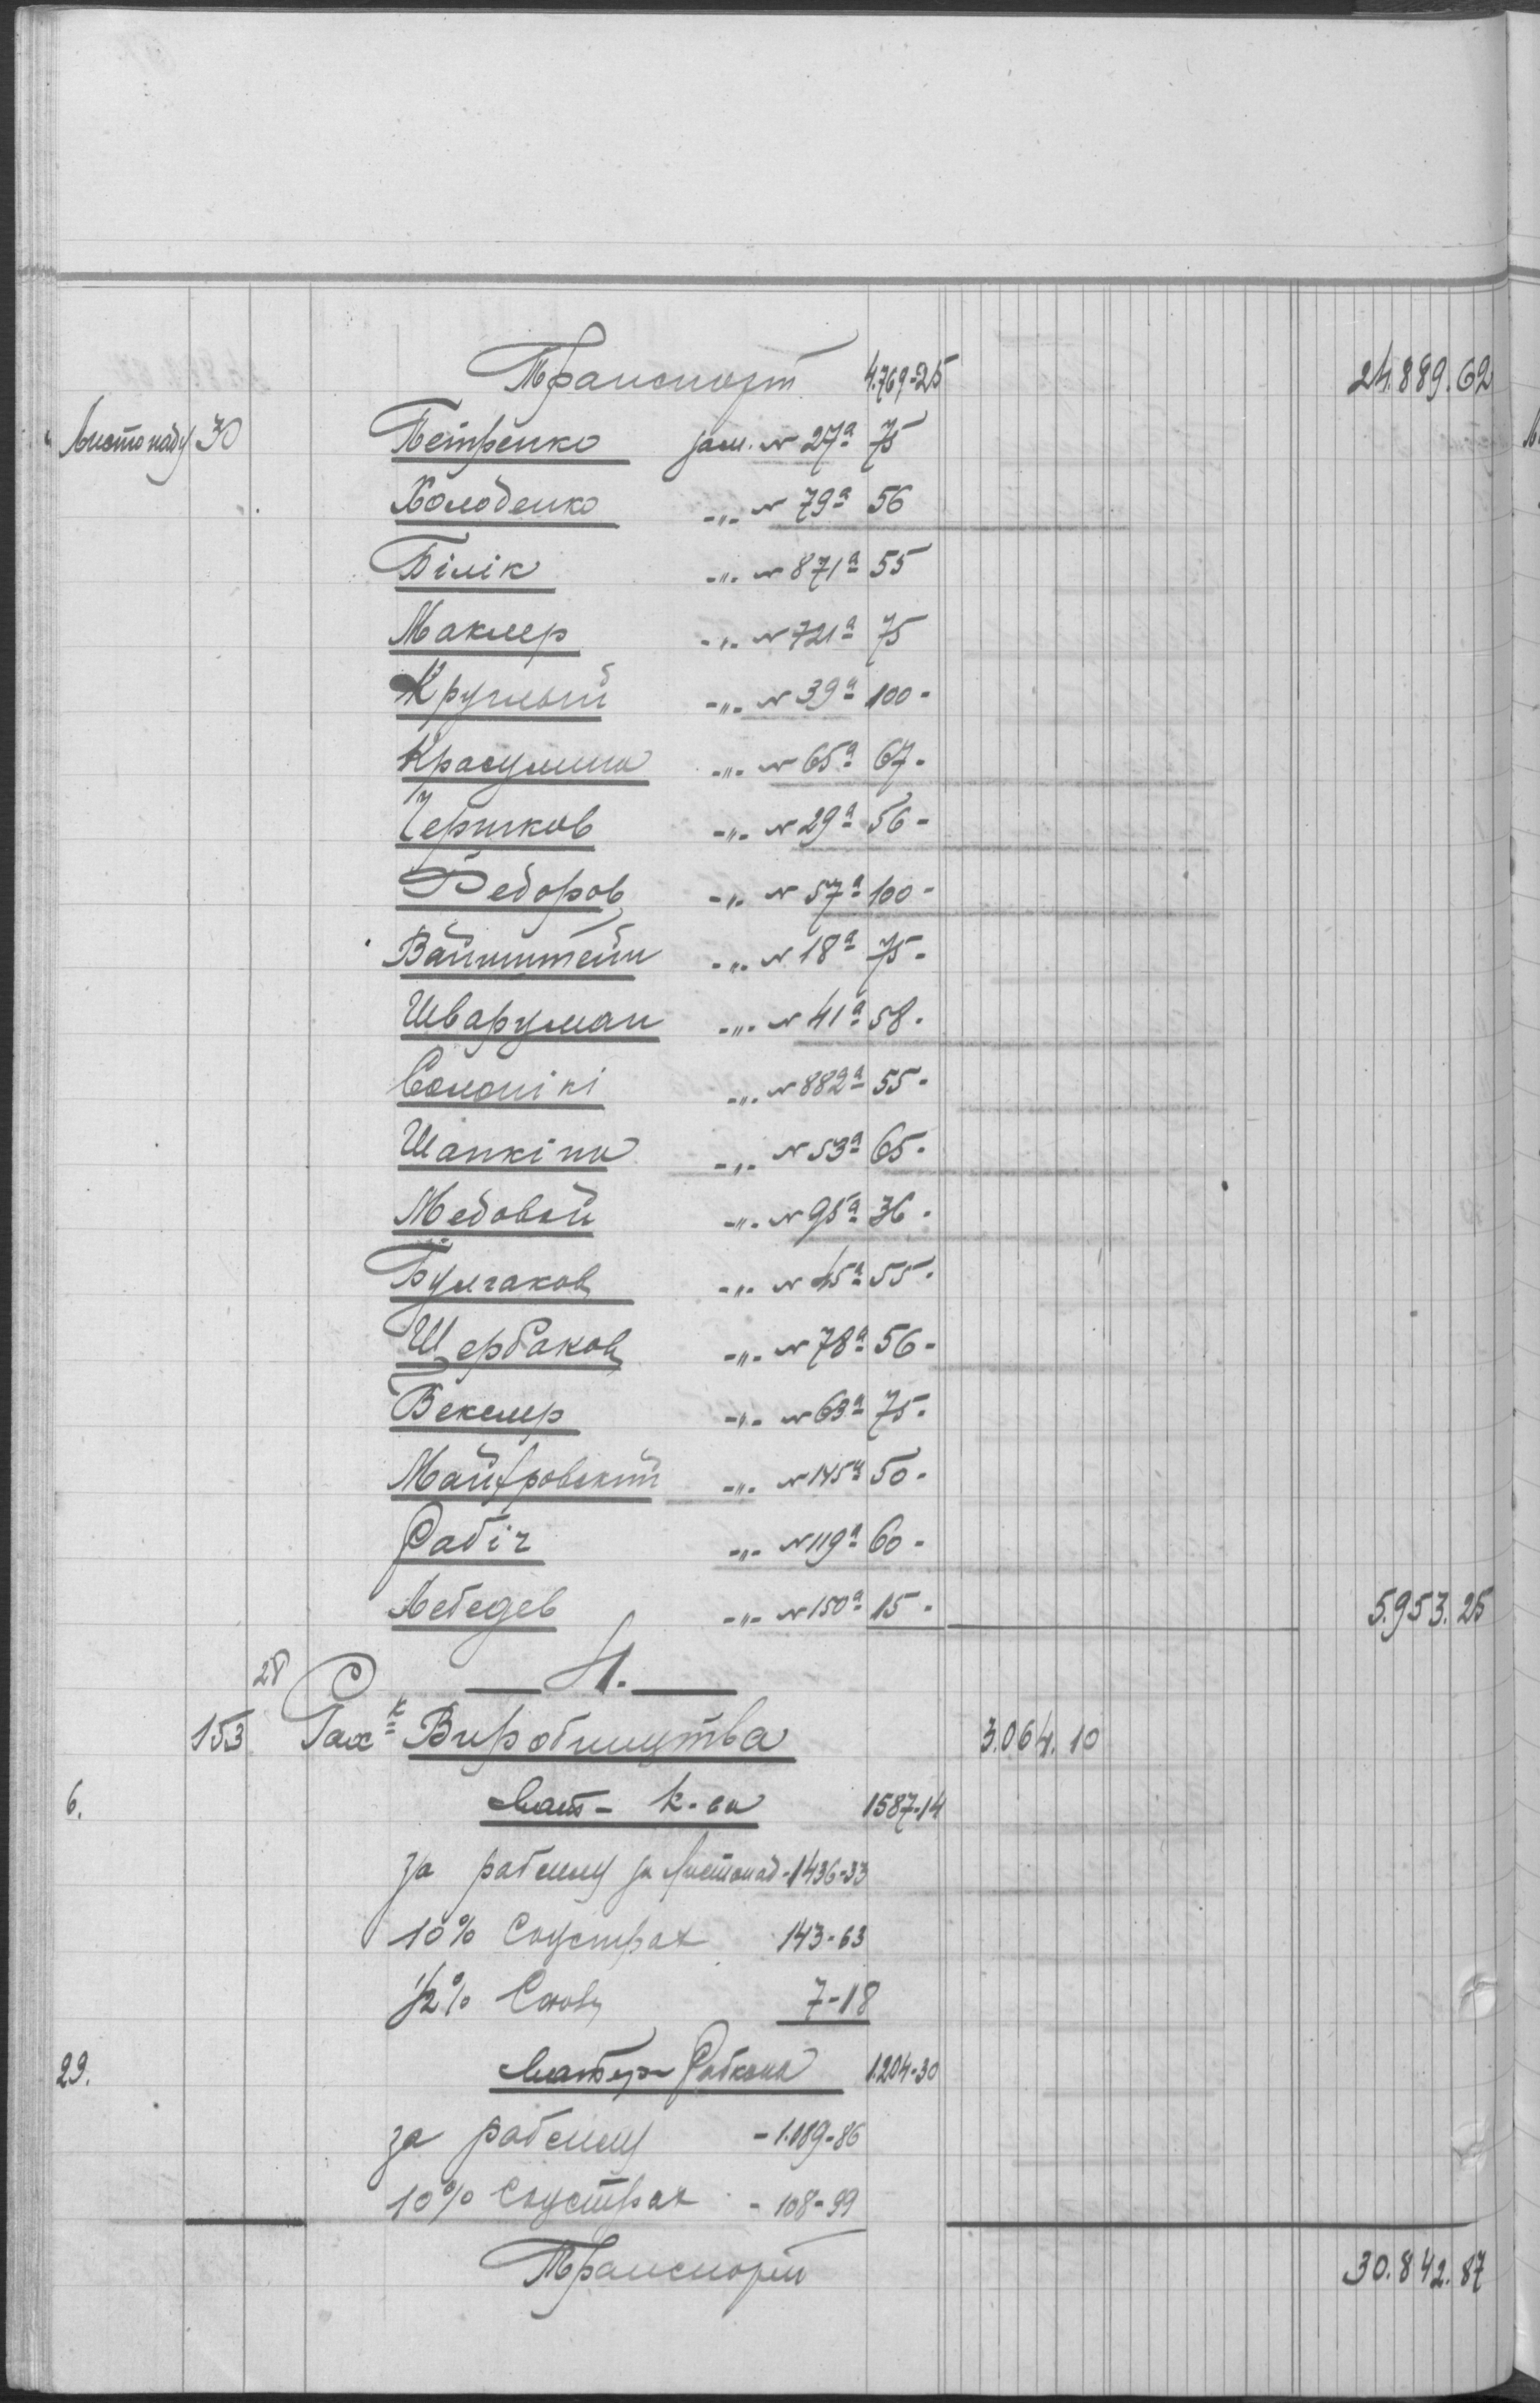 Транспорт 4.769-25 24.889.62
Листопаду 30 Петренко зам. № 27а 75
Холоденко -"- № 79а 56
Білік -"- № 871а 55
Маклер -"- № 721а 75
Круглый -"- № 39а 100-
-"- № 65а 67-
-"- № 29а 56-
Федоров -"- № 57а 100-
Вайнштейн -"- № 18а 75-
Шварцман -"- № 41а 58-
Солонікі -"- № 882а 55-
Шапкіна -"- № 53а 65-
Медовой -"- № 95а 36-
Булгаков -"- № 45а 55-
Щербаков -"- № 78а 56-
Векслер -"- № 63а 75-
-"- № 145а 50-
Рабіч -"- № 119а 60-
Лебедев -"- № 150а 15- 5.953.25
28 4.
153 Рах-к Виробництва 3.064.10
6. к-ва 1587-14
за за Листопад - 1436-33
10% Соцстрах 143-63
1/2% 7-18
29. 1.204-30
за - 1.089-86
10% Соцстрах - 108-99
Транспорт 30.842.87